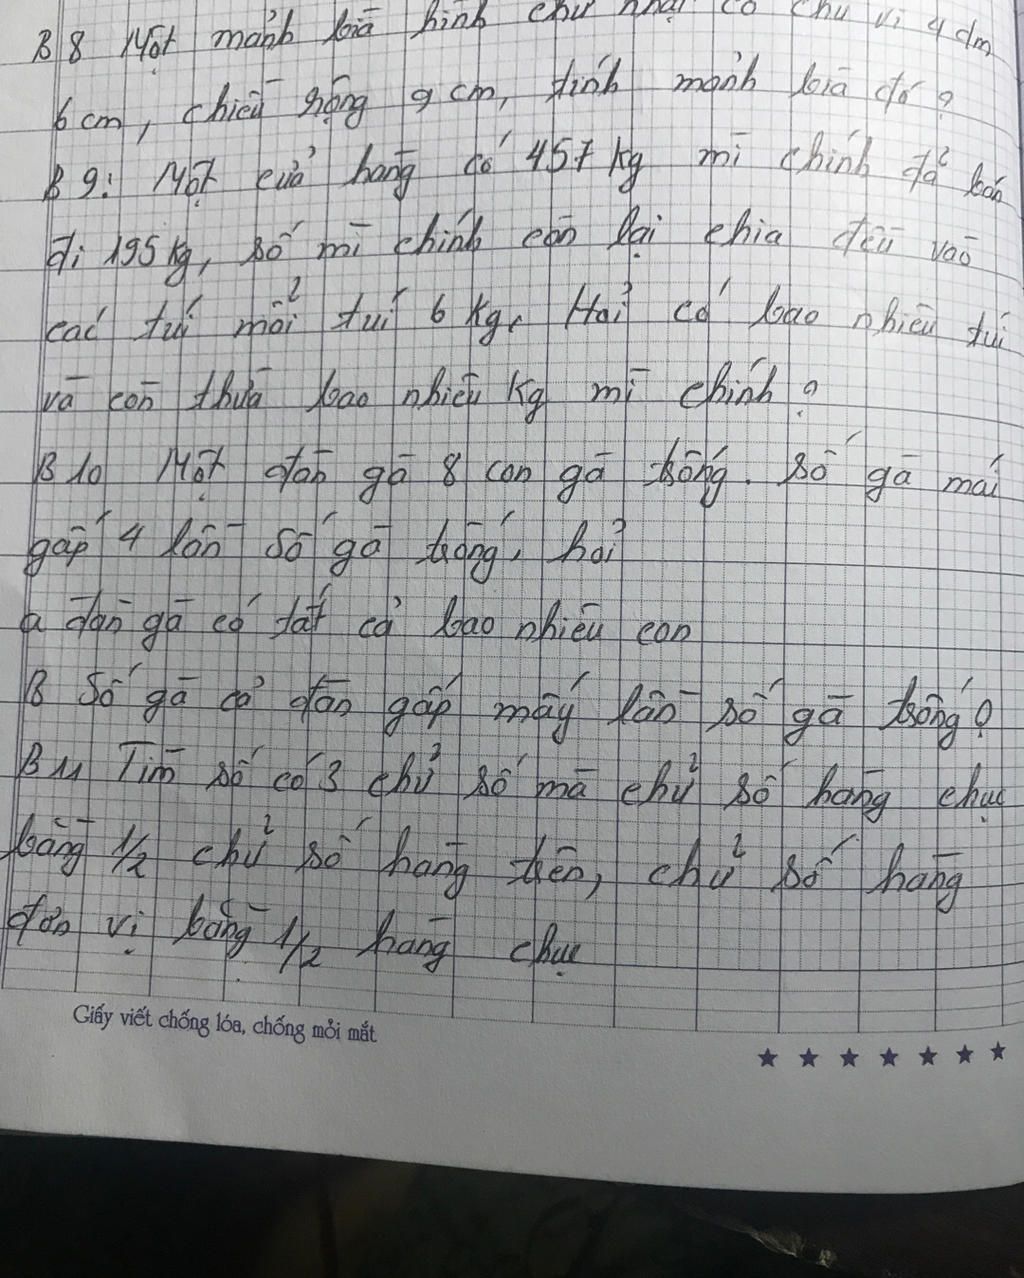 B 8 Một mảnh bìa hình chữ nhật có chu vi 4 dm
6 cm, chiều rộng 9 cm, tính mảnh bìa đó ?
B 9: Một cửa hàng có 457 kg mì chính đã bán
đi 195 kg, số mì chính còn lại chia đều vào
các túi mỗi túi 6 kg. Hỏi có bao nhiêu túi
và còn thừa bao nhiêu kg mì chính ?
B 10 Một đàn gà 8 con gà trống. Số gà mái
gấp 4 lần số gà trống, hỏi
a đàn gà có tất cả bao nhiêu con
B Số gà cả đàn gấp mấy lần số gà trống ?
B 11 Tìm số có 3 chữ số mà chữ số hàng chục
bằng 1/2 chữ số hàng trên, chữ số hàng
đơn vị bằng 1/2 hàng chục
Giấy viết chống lóa, chống mỏi mắt